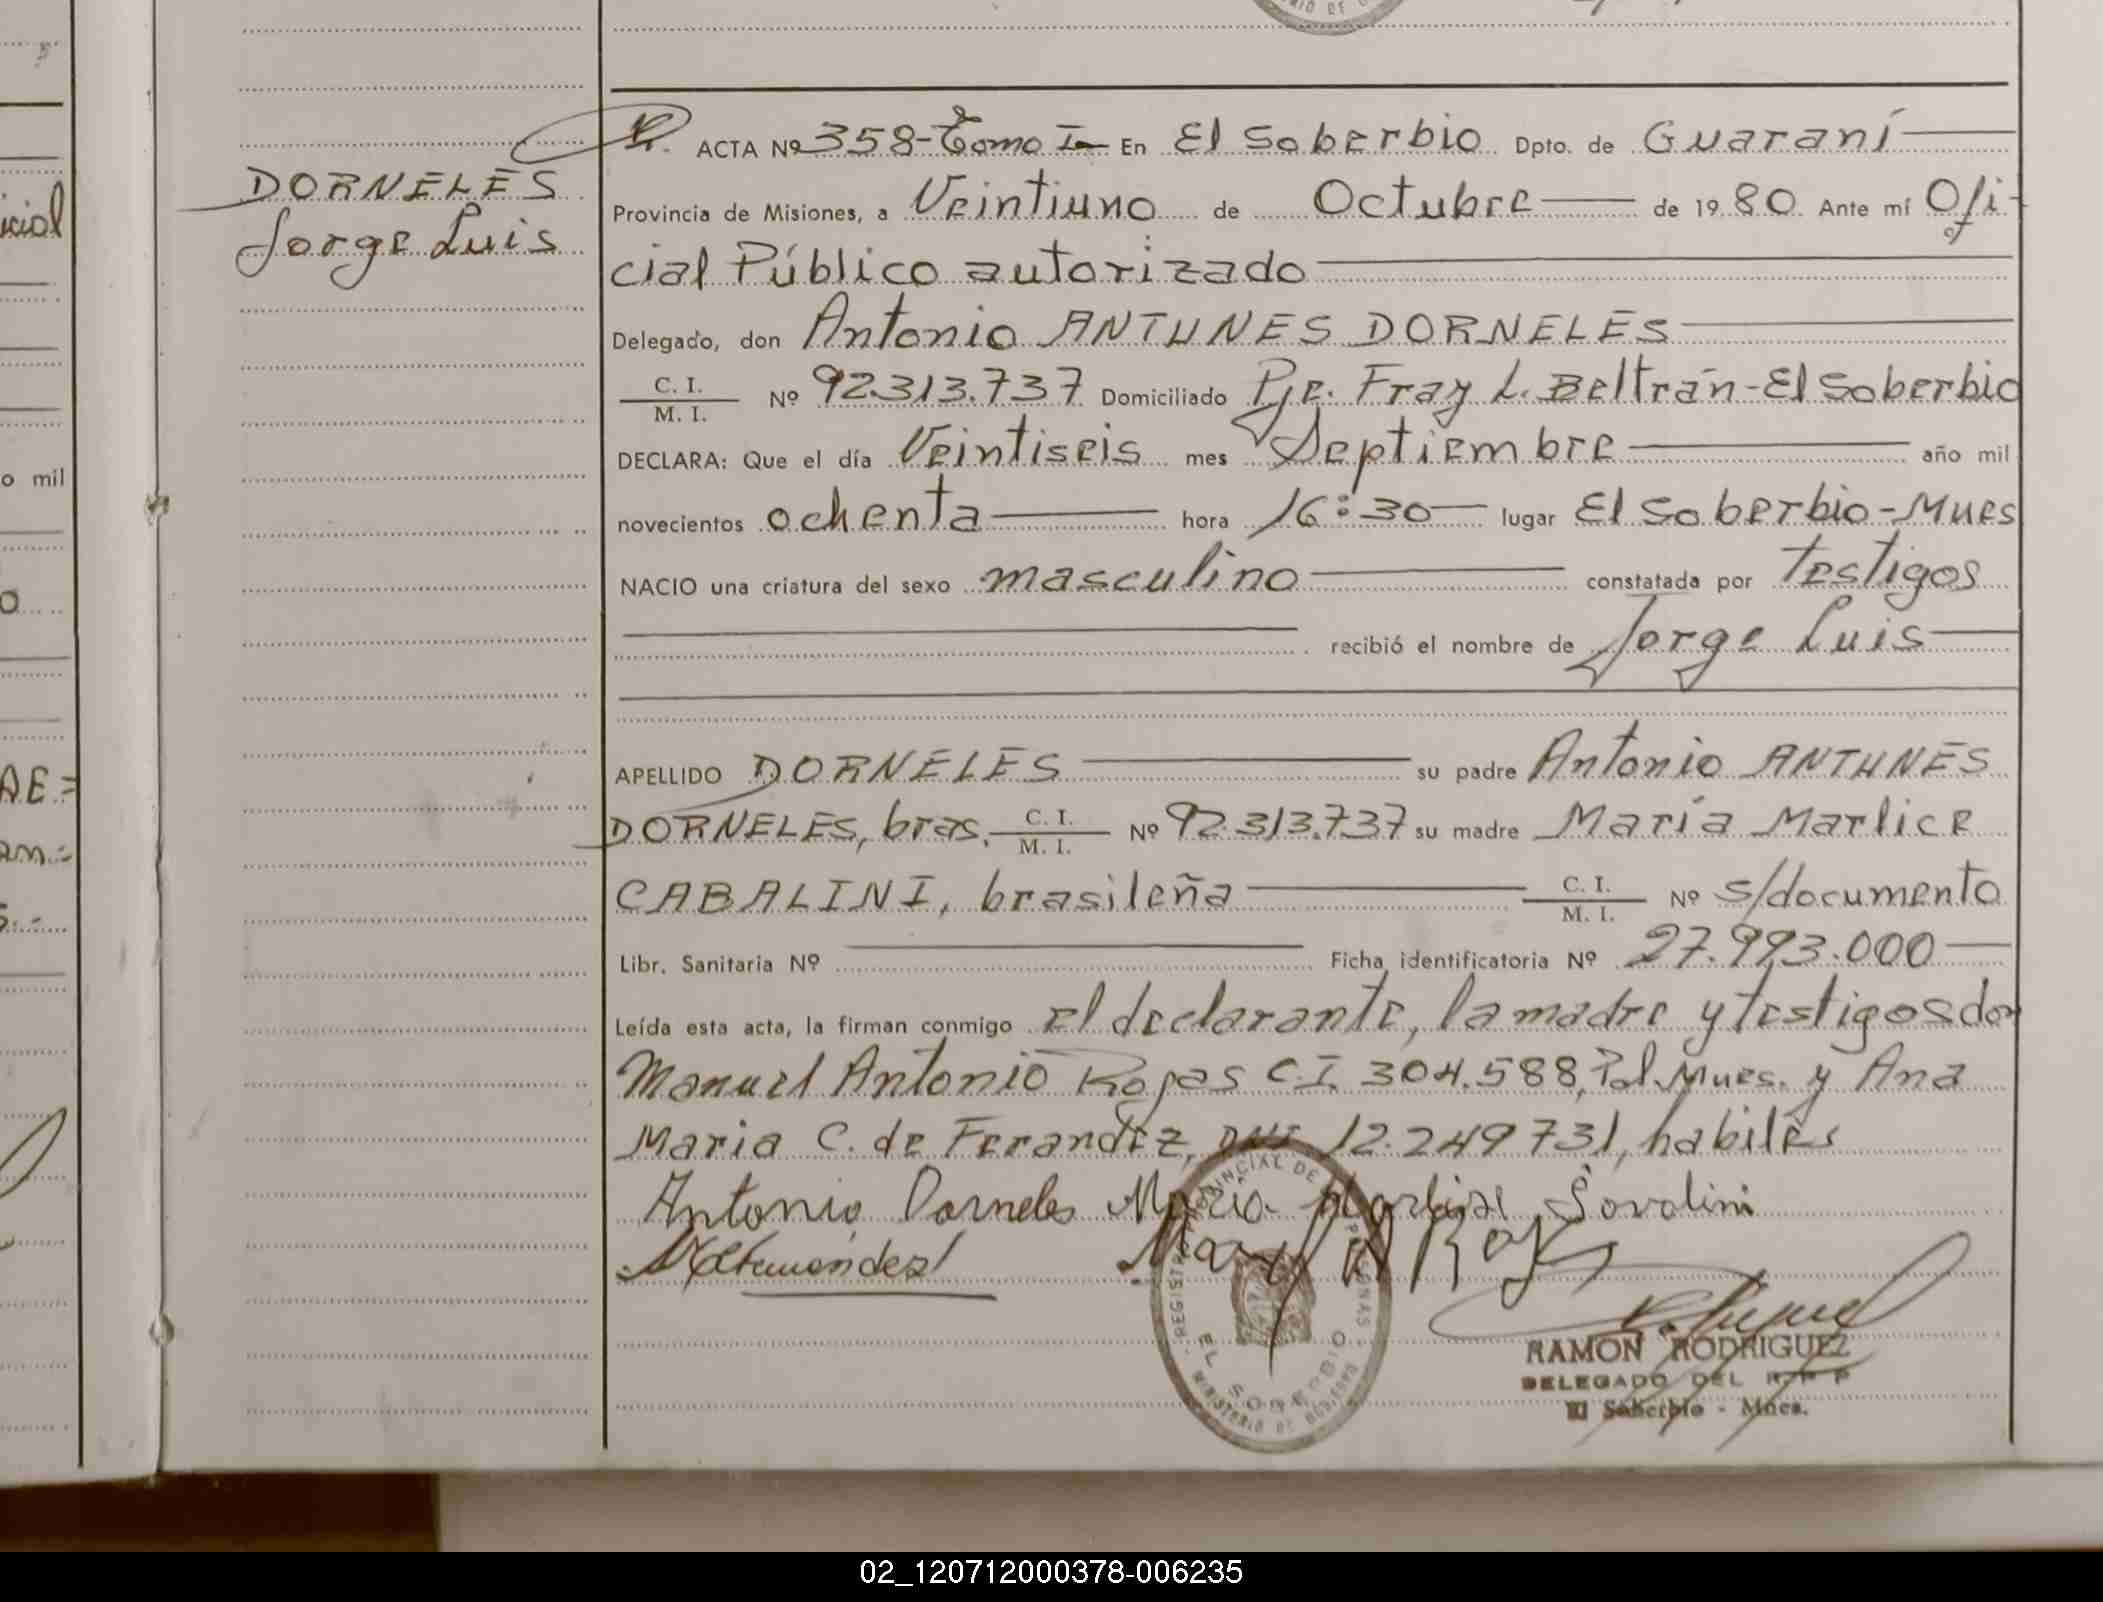 DORNELES
Jorge Luis
ACTA Nº 358-Tomo I- En El Soberbio Dpto. de Guaraní
Provincia de Misiones, a Veintiuno de Octubre de 1980. Ante mí Ofi-
cial Público autorizado
Delegado, don Antonio ANTUNES DORNELES
C. I.
M. I.
Nº 92.313.737 Domiciliado Pje. Fray L. Beltrán-El Soberbio
DECLARA: Que el día Veintiseis mes Septiembre año mil
novecientos ochenta hora 16:30 lugar El Soberbio-Mnes
NACIO una criatura del sexo masculino constatada por testigos
recibió el nombre de Jorge Luis
APELLIDO DORNELES su padre Antonio ANTUNES
DORNELES, bras. C. I. M. I. Nº 92.313.737 su madre María Marlice
CABALINI, brasileña C. I. M. I. Nº s/documento
Libr. Sanitaria Nº Ficha identificatoria Nº 27.993.000
Leída esta acta, la firman conmigo el declarante, la madre y testigos don
Manuel Antonio Rojas C.I. 304.588, Pol. Mnes. y Ana
Maria C. de Ferandez, DNI 12.249731, habiles
Antonio Dorneles Maria Marlise Sovalini
REGISTRO PROVINCIAL DE LAS PERSONAS
EL SOBERBIO
MINISTERIO DE GOBIERNO
RAMON RODRIGUEZ
DELEGADO DEL R.P.P
El Soberbio - Mnes.
icial
o mil
o
AE=
02_120712000378-006235